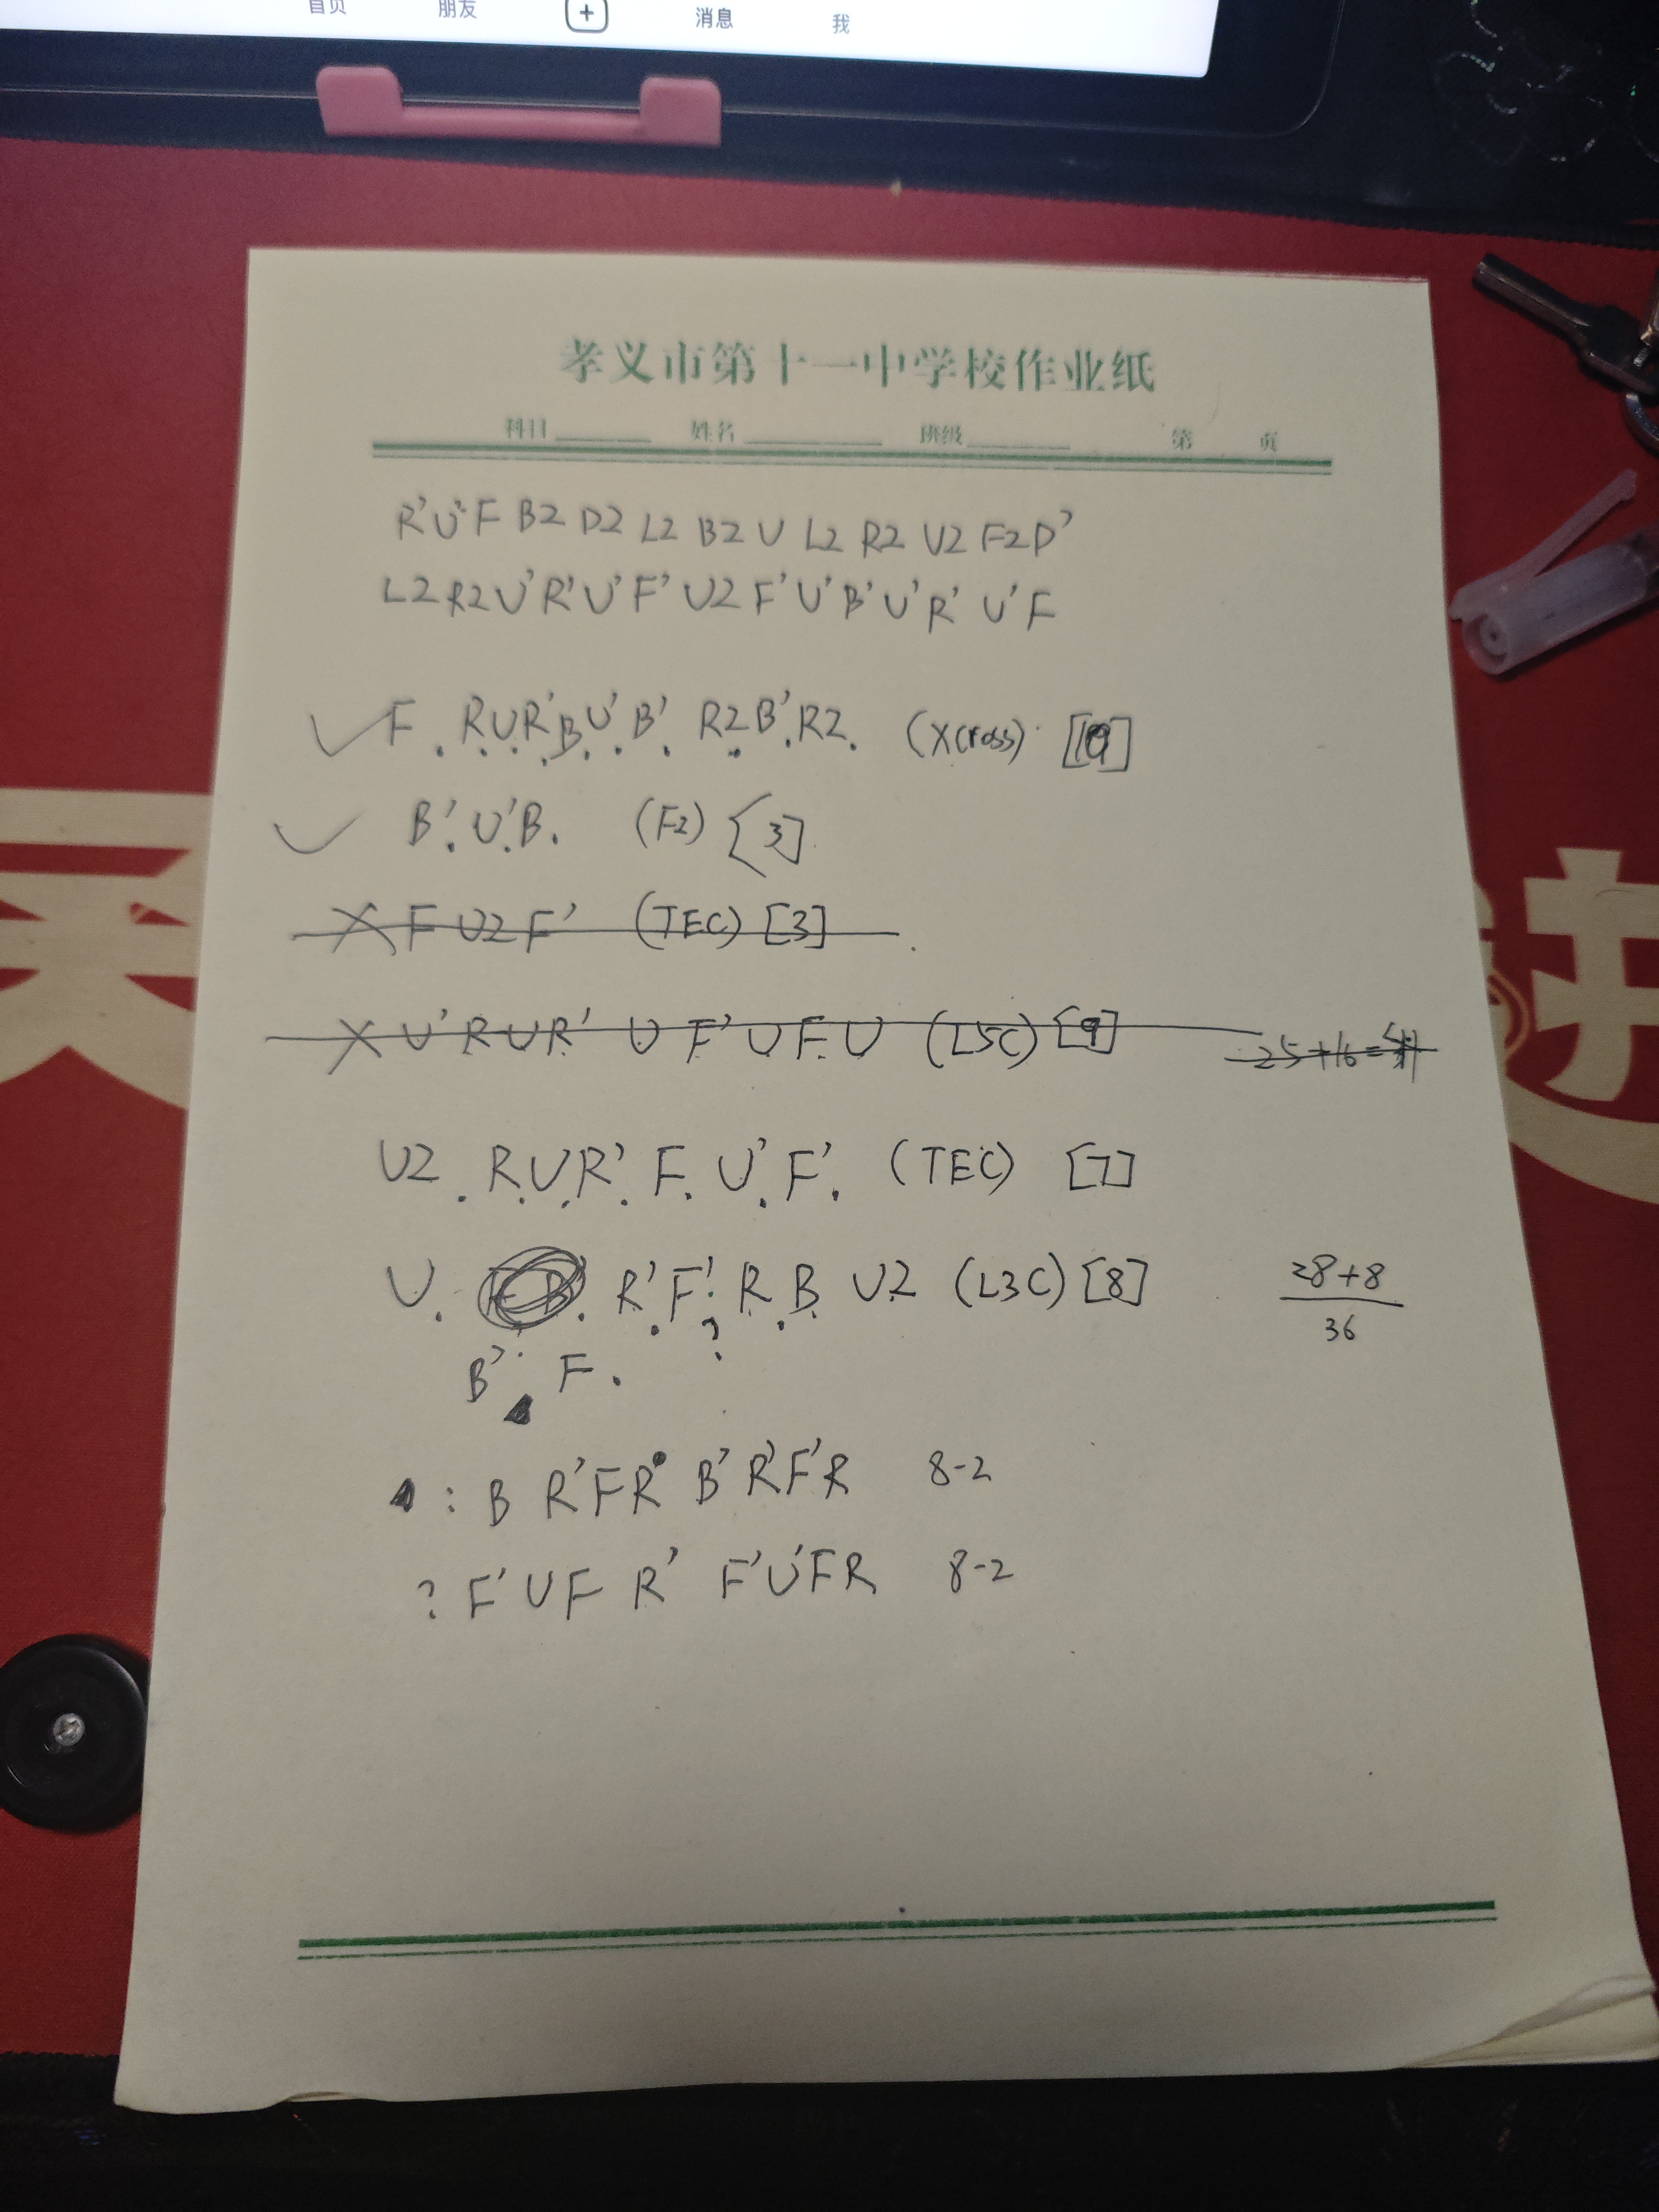 首页 朋友 + 消息 我
孝义市第十一中学校作业纸
科目 姓名 班级 第 页
R' U' F B2 D2 L2 B2 U L2 R2 U2 F2 D'
L2 R2 U' R' U' F' U2 F' U' B' U' R' U' F
F . R U R' B U' B' . R2 B' R2 . (Xcross) [10]
B' U' B . (F2) [3]
X F U2 F' (TEC) [3]
X U' R U R' U F' U F U (L5C) [9]
25+16=41
U2 . R U R' F U' F' . (TEC) [7]
U . R' F' R B U2 (L3C) [8]
28+8
36
B' F .
: B R' F R B' R' F' R 8-2
? F' U F R' F' U' F R 8-2